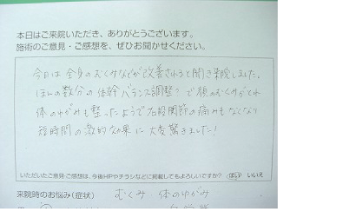 本日はご来院いただき、ありがとうございます。
施術のご意見・ご感想を、ぜひお聞かせください。
今日は全身のむくみなどが改善されると聞き来院しました。
ほんの数分の体幹バランス調整で顔のむくみがとれ
体のゆがみも整ったようで右股関節の痛みもなくなり
短時間の激的効果に大変驚きました!
いただいたご意見・ご感想は、今後HPやチラシなどに掲載してもよろしいですか? はい いいえ
来院時のお悩み(症状) むくみ・体のゆがみ